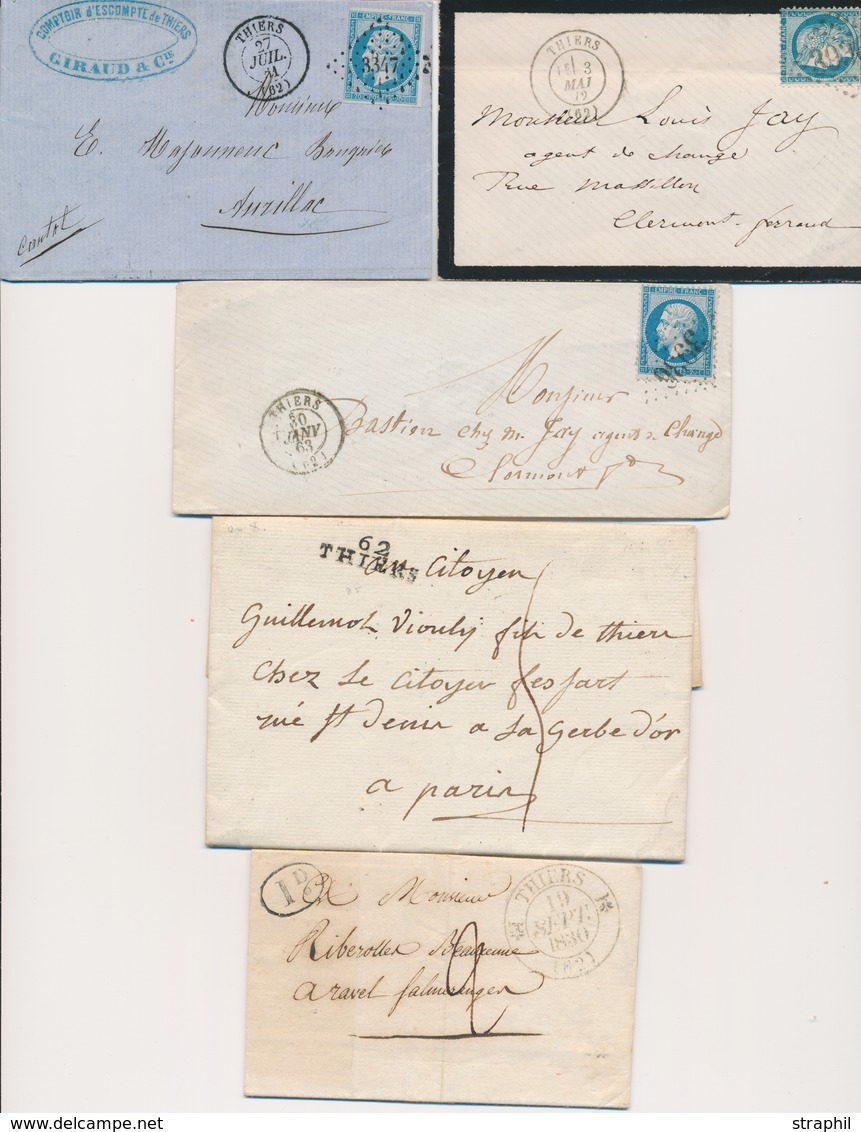 COMPTOIR D'ESCOMPTE de THIERS
GIRAUD & CIE
THIERS
27
JUIL.
61
(62)
3347
Monsieur
E. Majonnenc Banquier
Aurillac
Cantal
THIERS
3
MAI
72
(62)
Monsieur Louis Jay
agent de change
Rue Massillon
Clermont-ferrand
EMPIRE FRANC
THIERS
30
JANV
63
(62)
Monsieur
Bastien chez m. Jay agent de Change
Clermont fd
62
THIERS
au Citoyen
Guillemot Viouly fils de thiers
chez Le Citoyen
rue st denis a La Gerbe d'or
a paris
1 D
A Monsieur
Riberolles
a ravel salmeranges
2
THIERS
19
SEPT.
1830
(62)
straphil